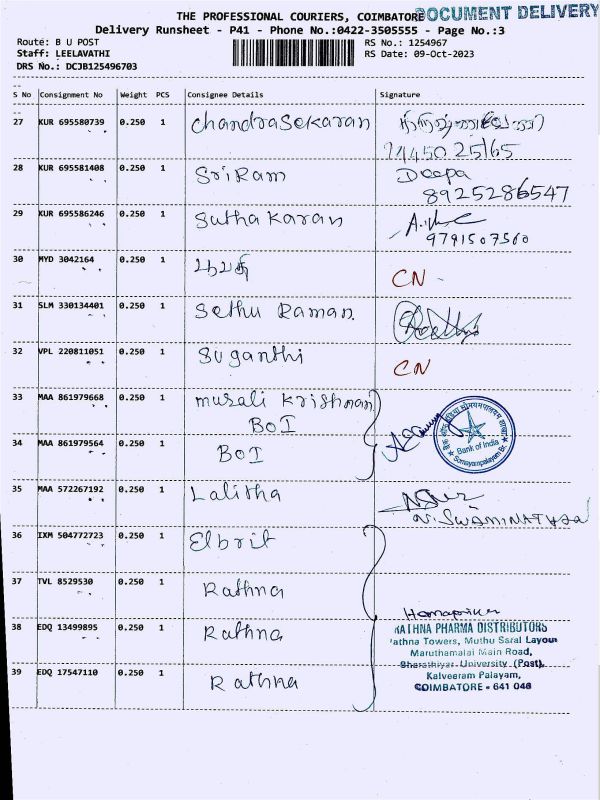 DOCUMENT DELIVERY
THE PROFESSIONAL COURIERS, COIMBATORE
Delivery Runsheet - P41 - Phone No.:0422-3505555 - Page No.:3
Route: B U POST RS No.: 1254967
Staff: LEELAVATHI RS Date: 09-Oct-2023
DRS No.: DCJB125496703
S No Consignment No Weight PCS Consignee Details Signature
27 KUR 695580739 0.250 1 ChandraSekaran
9445025165
28 KUR 695581408 0.250 1 SriRam Deepa
8925286547
29 KUR 695586246 0.250 1 Sutha Karan
9791507560
30 MYD 3042164 0.250 1 CN
31 SLM 330134401 0.250 1 Sethu Raman.
32 VPL 220811051 0.250 1 Suganthi CN
33 MAA 861979668 0.250 1 Murali Krishnan
BOI
34 MAA 861979564 0.250 1 BOI
Bank of India
Somayampalayam Br.
35 MAA 572267192 0.250 1 Lalitha
N. SWAMINATHAN
36 IXM 504772723 0.250 1 Elbrit
37 TVL 8529530 0.250 1 Rathna
Hemapriya
38 EDQ 13499895 0.250 1 Rathna
RATHNA PHARMA DISTRIBUTORS
Rathna Towers, Muthu Saral Layout
Maruthamalai Main Road,
Bharathiyar University (Post),
Kalveeram Palayam,
COIMBATORE - 641 046
39 EDQ 17547110 0.250 1 Rathna